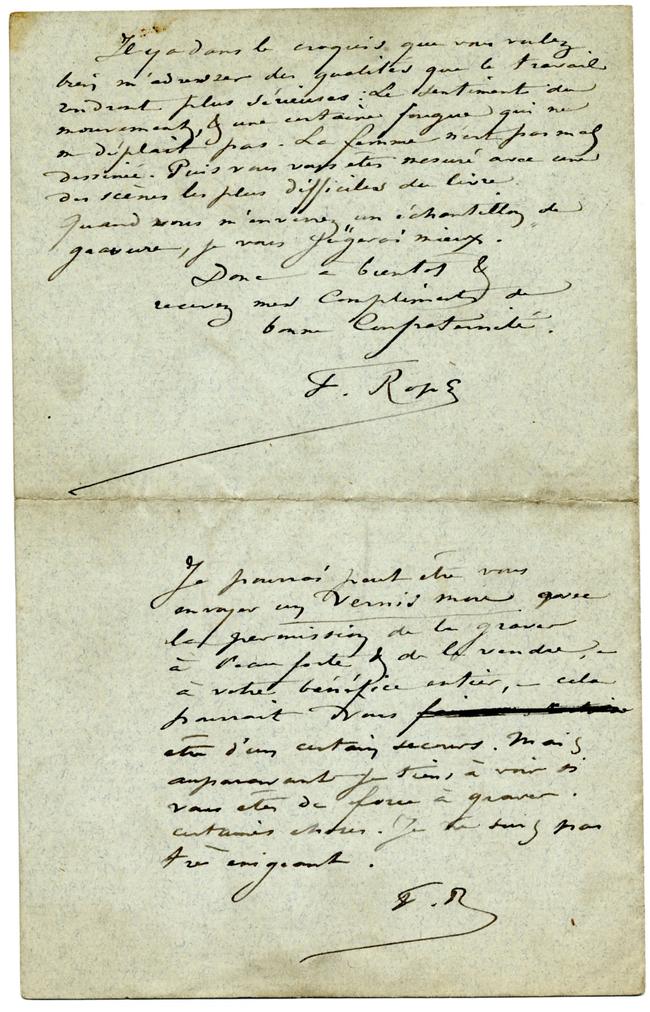 Il y a dans le croquis que vous voulez
bien m'adresser des qualités que le travail
rendront plus sérieuses : Le sentiment du
mouvement, & une certaine fougue qui ne
m déplait pas. La femme n'est pas mal
dessinée. Puis vous vous êtes mesuré avec une
des scènes les plus difficiles du livre.
Quand vous m'enverrez un échantillon de
gravure, je vous jugerai mieux.
Donc à bientot &
recevez mes Compliments de
bonne Confraternité.
F. Rops
Je pourrai peut être vous
envoyer un Vernis mou avec
la permission de le graver
à l'eau forte & de le vendre, –
à votre bénéfice entier, – cela
pourrait vous
être d'un certain secours. Mais
auparavant je tiens à voir si
vous êtes de force à graver
certaines choses. Je ne suis pas
très exigeant.
F. R